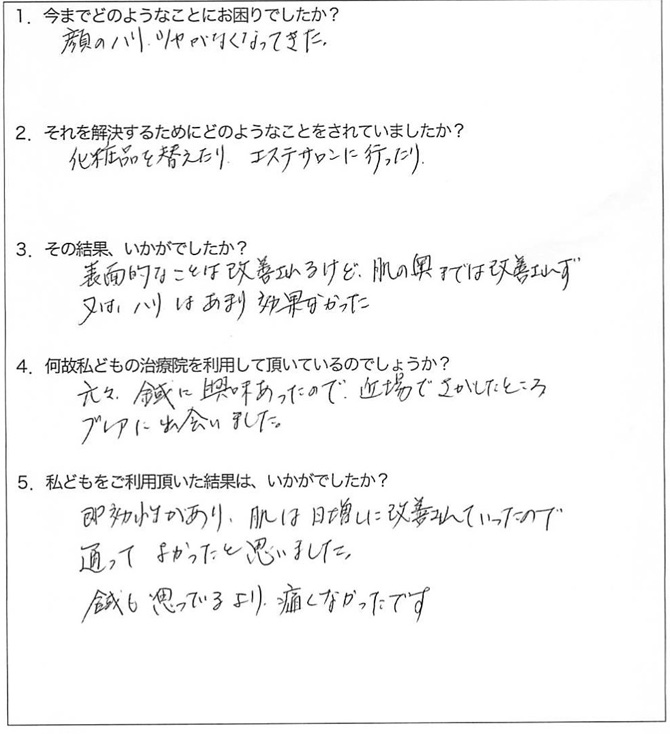 1．今までどのようなことにお困りでしたか？
顔のハリ、ツヤがなくなってきた。
2．それを解決するためにどのようなことをされていましたか？
化粧品を替えたり、エステサロンに行ったり、
3．その結果、いかがでしたか？
表面的なことは改善されるけど、肌の奥までは改善されず
又は、ハリはあまり効果なかった
4．何故私どもの治療院を利用して頂いているのでしょうか？
元々、鍼に興味あったので、近場でさがしたところ
ブレアに出会いました。
5．私どもをご利用頂いた結果は、いかがでしたか？
即効性があり、肌は日増しに改善されていったので
通ってよかったと思いました。
鍼も思っているより、痛くなかったです